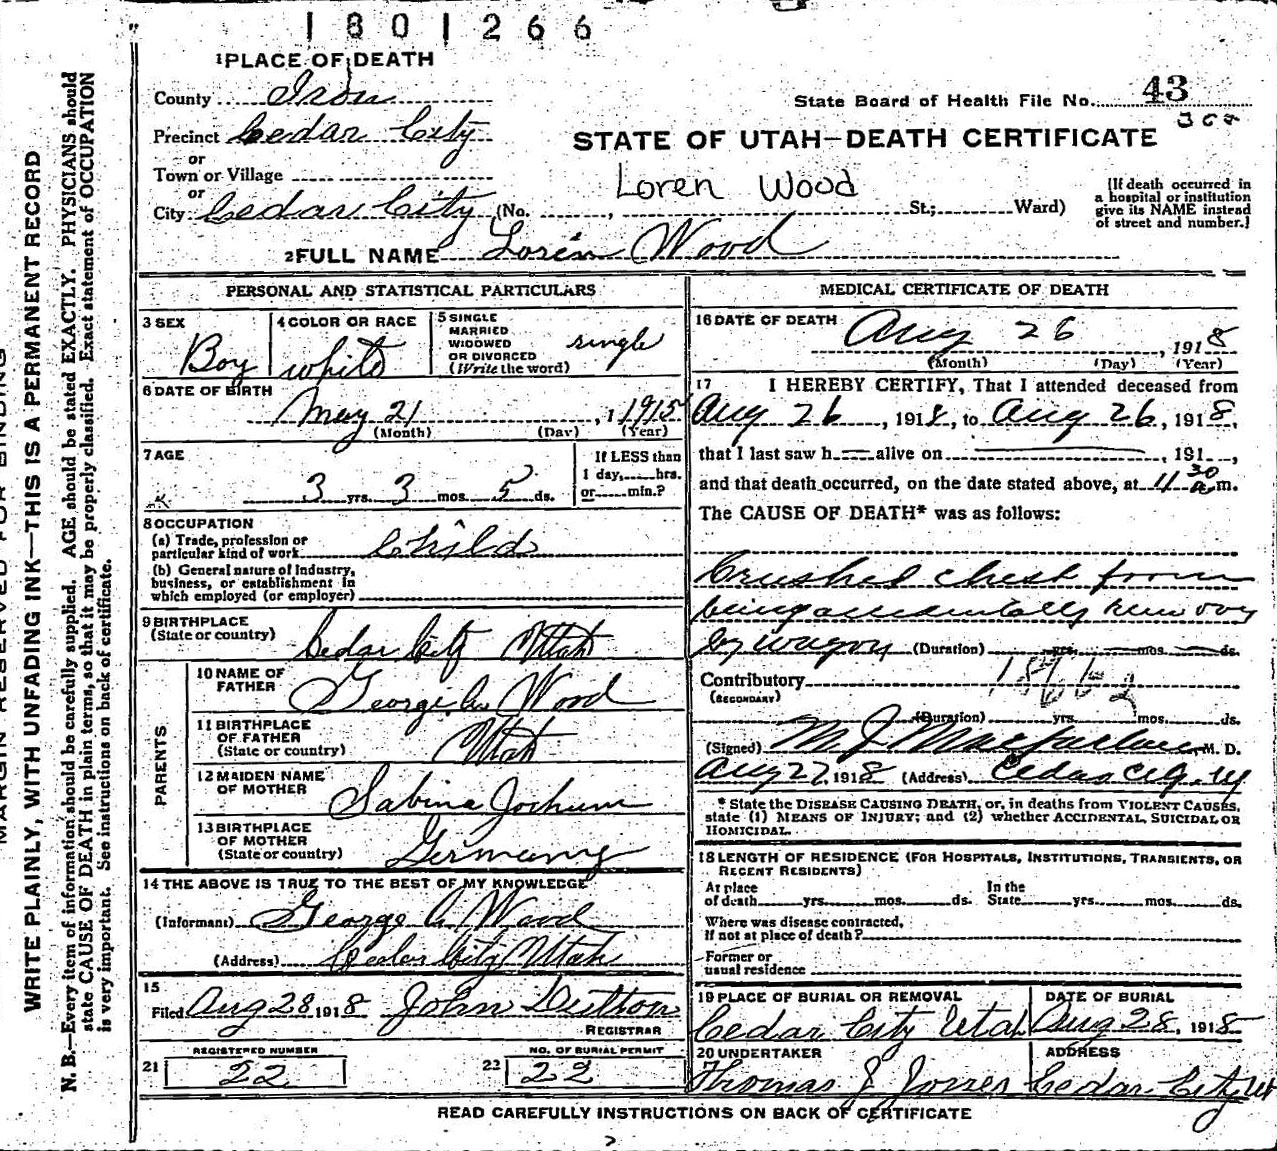 1801266
1 PLACE OF DEATH
County Iron
State Board of Health File No. 43
Precinct Cedar City
STATE OF UTAH—DEATH CERTIFICATE
or
Town or Village
Loren Wood
or
City Cedar City (No. , St.; Ward)
(If death occurred in
a hospital or institution
give its NAME instead
of street and number.)
2 FULL NAME Loren Wood
PERSONAL AND STATISTICAL PARTICULARS
3 SEX Boy
4 COLOR OR RACE white
5 SINGLE
MARRIED
WIDOWED
OR DIVORCED
(Write the word) single
6 DATE OF BIRTH
May 21, 1 1915
(Month) (Day) (Year)
7 AGE
3 yrs. 3 mos. 5 ds.
If LESS than
1 day, hrs.
or min.?
8 OCCUPATION
(a) Trade, profession or
particular kind of work Child
(b) General nature of Industry,
business, or establishment in
which employed (or employer)
9 BIRTHPLACE
(State or country) Cedar City Utah
PARENTS
10 NAME OF
FATHER George A. Wood
11 BIRTHPLACE
OF FATHER
(State or country) Utah
12 MAIDEN NAME
OF MOTHER Sabina Jochum
13 BIRTHPLACE
OF MOTHER
(State or country) Germany
14 THE ABOVE IS TRUE TO THE BEST OF MY KNOWLEDGE
(Informant) George A Wood
(Address) Cedar City Utah
15
Filed Aug 28 1918 John Dutton
REGISTRAR
21 REGISTERED NUMBER 22
22 NO. OF BURIAL PERMIT 22
MEDICAL CERTIFICATE OF DEATH
16 DATE OF DEATH Aug 26, 1918
(Month) (Day) (Year)
17 I HEREBY CERTIFY, That I attended deceased from
Aug 26, 1918, to Aug 26, 1918,
that I last saw h alive on , 191 ,
and that death occurred, on the date stated above, at 11 30 a m.
The CAUSE OF DEATH* was as follows:
Crushed chest from
being accidentally run over
by wagon (Duration) yrs. mos. ds.
Contributory
(SECONDARY)
(Duration) yrs. mos. ds.
(Signed) M J Macfarlane, M. D.
Aug 27, 1918 (Address) Cedar City, Ut
* State the DISEASE CAUSING DEATH, or, in deaths from VIOLENT CAUSES,
state (1) MEANS OF INJURY; and (2) whether ACCIDENTAL, SUICIDAL OR
HOMICIDAL.
18 LENGTH OF RESIDENCE (FOR HOSPITALS, INSTITUTIONS, TRANSIENTS, OR
RECENT RESIDENTS)
At place
of death yrs. mos. ds.
In the
State yrs. mos. ds.
Where was disease contracted,
if not at place of death?
Former or
usual residence
19 PLACE OF BURIAL OR REMOVAL
Cedar City Utah
DATE OF BURIAL
Aug 28, 1918
20 UNDERTAKER
Thomas J Jones
ADDRESS
Cedar City Ut
READ CAREFULLY INSTRUCTIONS ON BACK OF CERTIFICATE
MARGIN RESERVED FOR BINDING
WRITE PLAINLY, WITH UNFADING INK—THIS IS A PERMANENT RECORD
N. B.—Every item of information should be carefully supplied. AGE should be stated EXACTLY. PHYSICIANS should
state CAUSE OF DEATH in plain terms, so that it may be properly classified. Exact statement of OCCUPATION
is very important. See instructions on back of certificate.